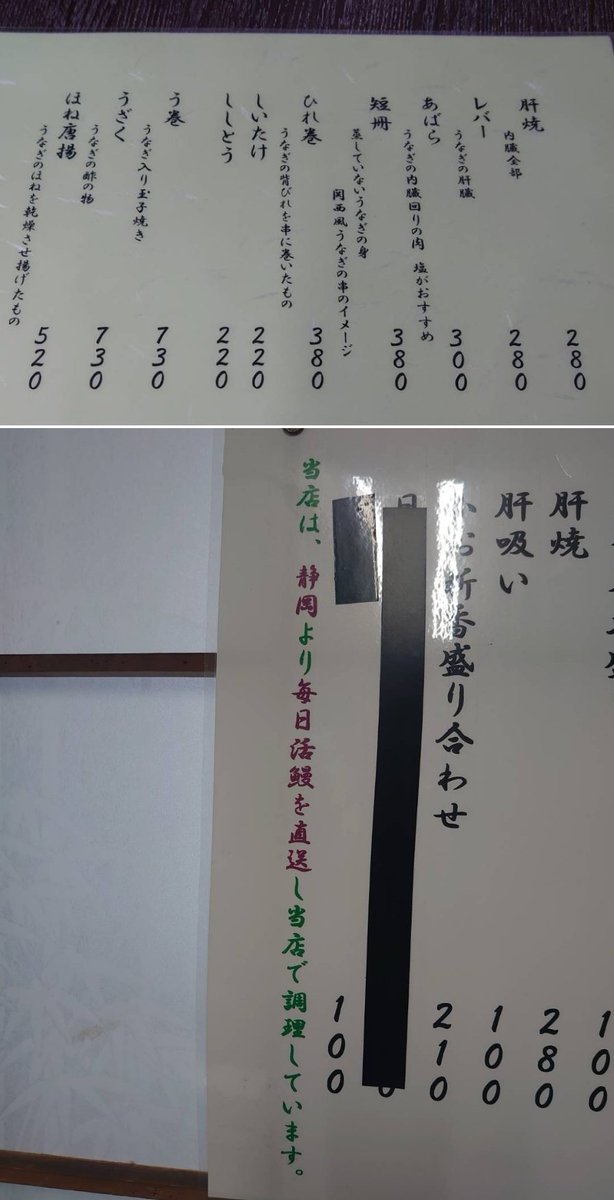 肝焼 280
内臓全部
レバー 280
うなぎの肝臓
あばら 300
うなぎの内臓回りの肉 塩がおすすめ
短冊 380
蒸していないうなぎの身
関西風うなぎの串のイメージ
ひれ巻 380
うなぎの背びれを串に巻いたもの
しいたけ 220
ししとう 220
う巻 730
うなぎ入り玉子焼き
うざく 730
うなぎの酢の物
ほね唐揚 520
うなぎのほねを乾燥させ揚げたもの
肝焼 280
肝吸い 100
お新香盛り合わせ 210
100
当店は、静岡より毎日活鰻を直送し当店で調理しています。